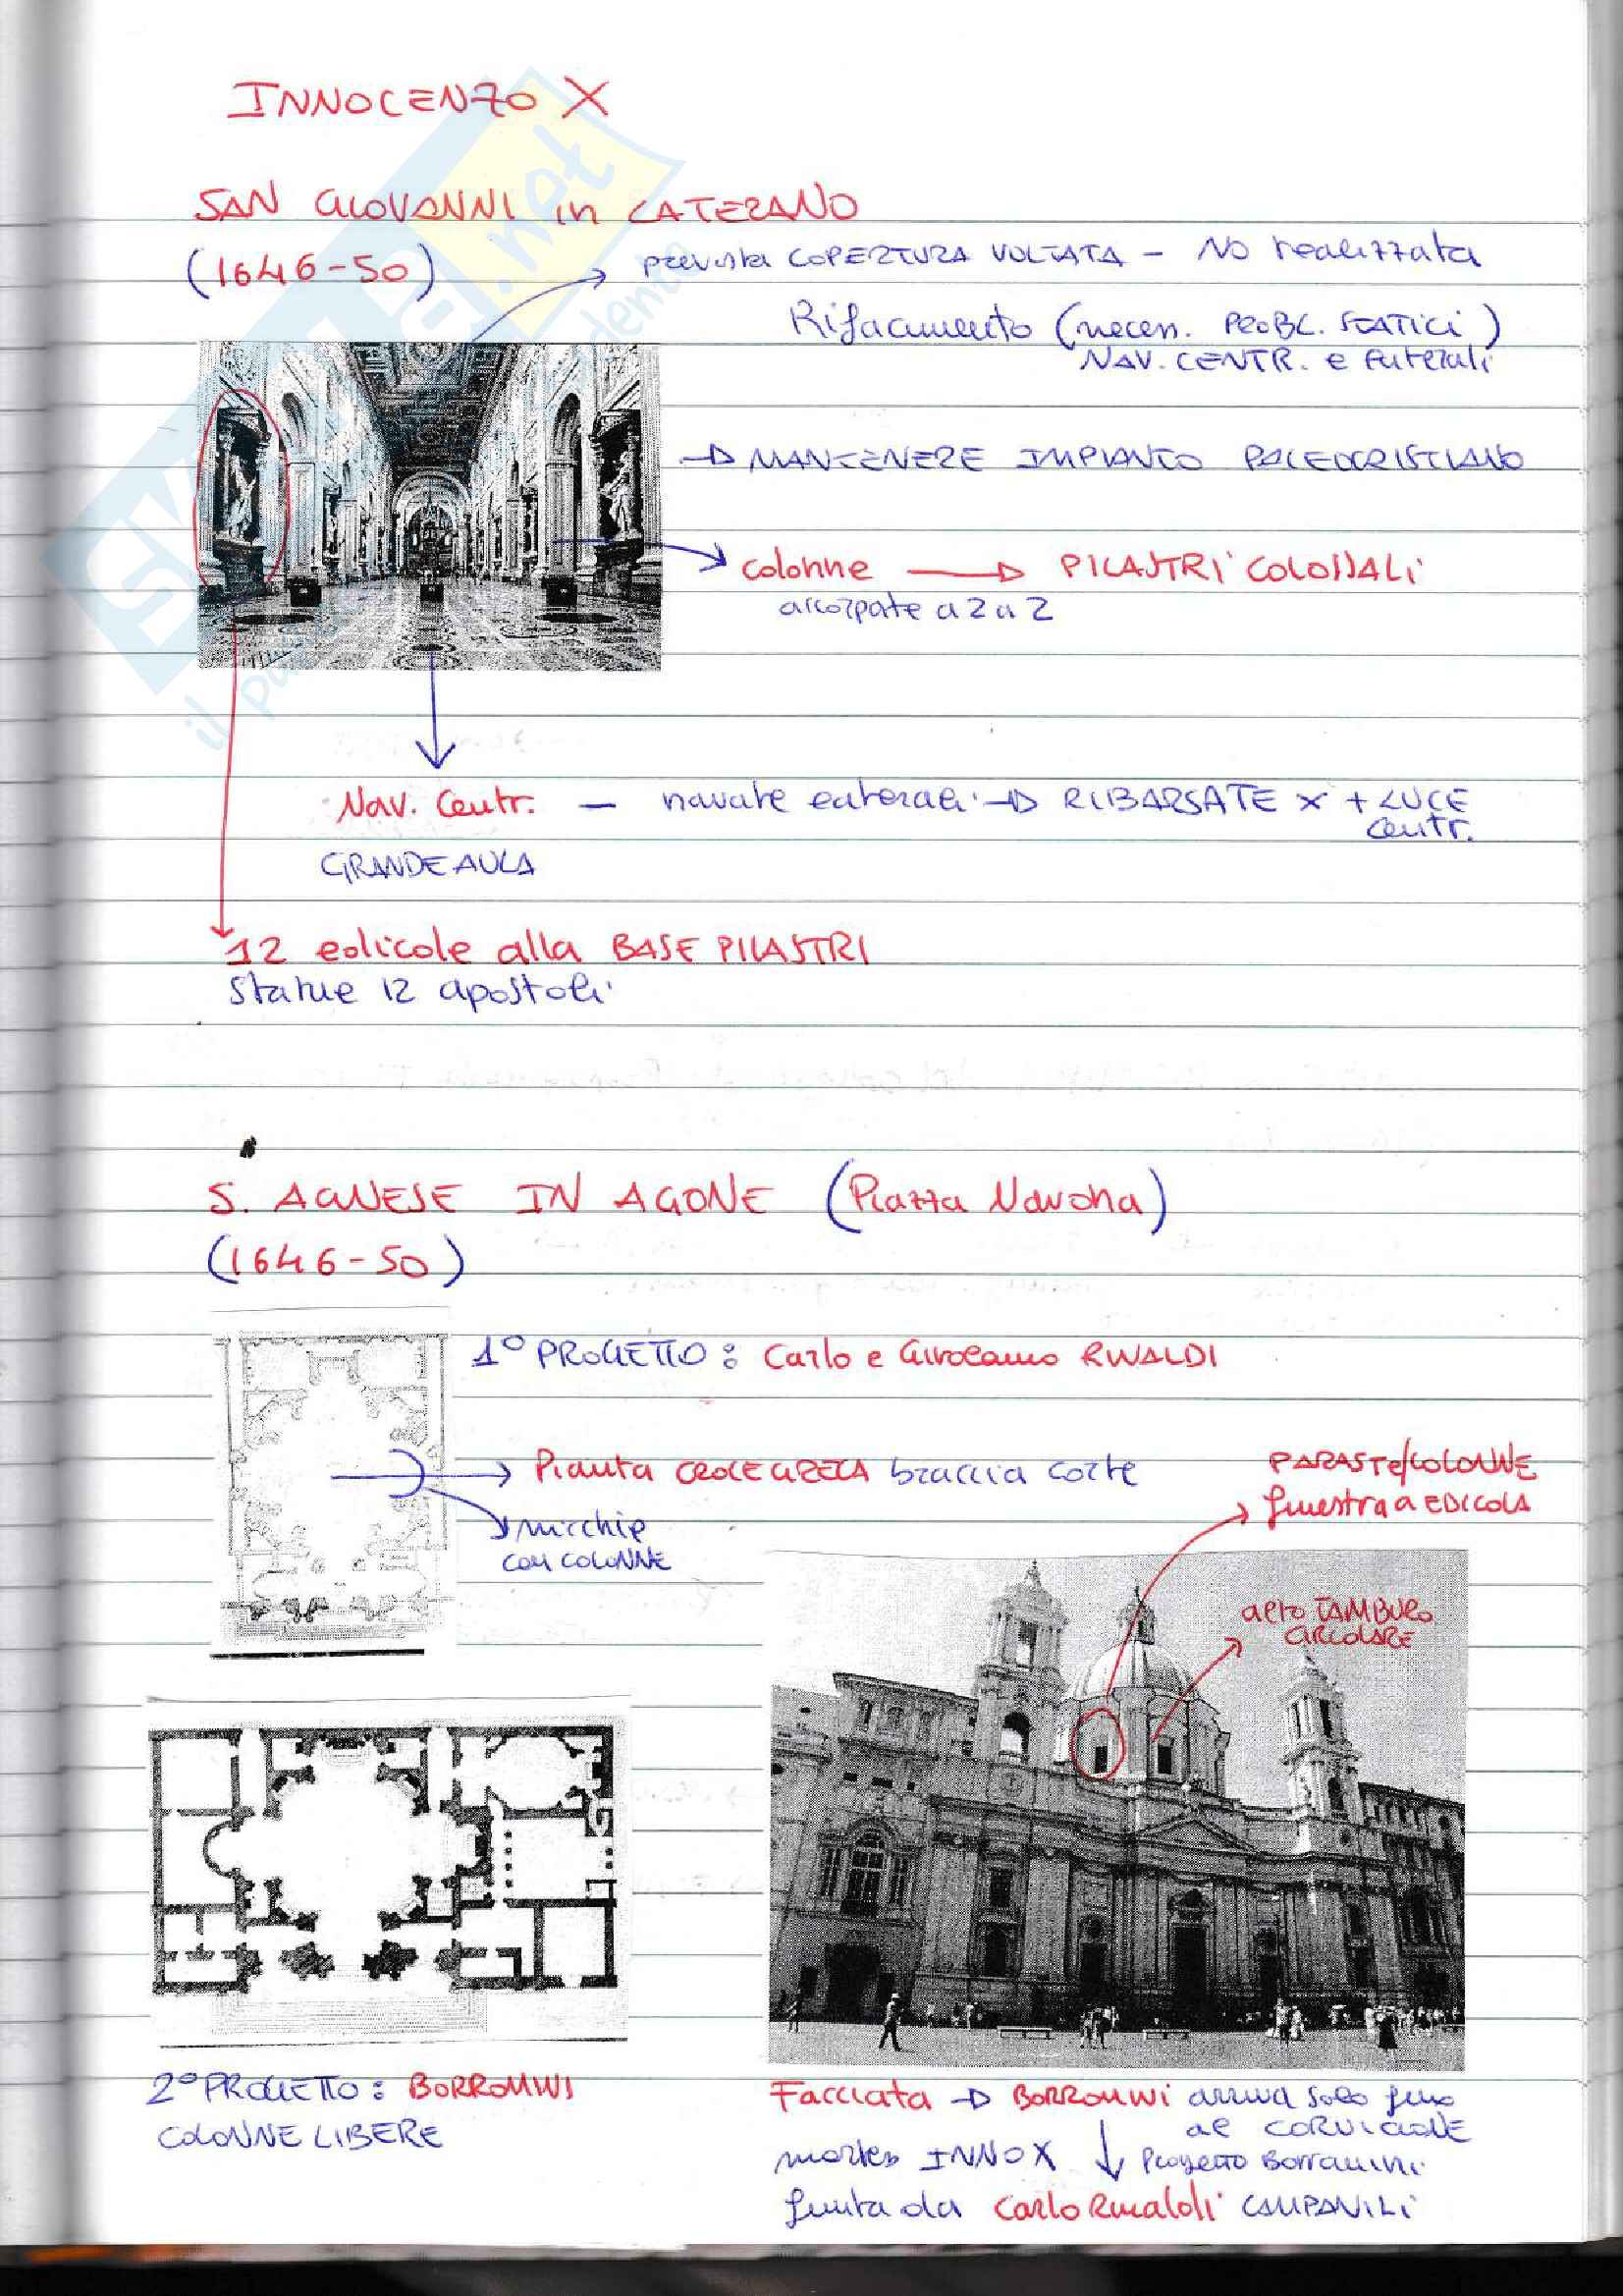 INNOCENZO X
SAN GIOVANNI in LATERANO
(1646-50)
prevista COPERTURA VOLTATA - NO realizzata
Rifacimento (necess. PROBL. STATICI)
NAV. CENTR. e laterali
→ MANTENERE IMPIANTO PALEOCRISTIANO
colonne → PILASTRI COLOSSALI
accorpate a 2 a 2
Nav. Centr. - navate laterali → RIBASSATE x + LUCE
centr.
GRANDE AULA
12 edicole alla BASE PILASTRI
statue 12 apostoli
S. AGNESE IN AGONE (Piazza Navona)
(1646-50)
1° PROGETTO: Carlo e Girolamo RINALDI
→ Pianta CROCE GRECA braccia corte
nicchie
con COLONNE
PARASTE/COLONNE
finestra a EDICOLA
alto TAMBURO
CIRCOLARE
2° PROGETTO: BORROMINI
COLONNE LIBERE
Facciata → BORROMINI arriva solo fino
al CORNICIONE
morte INNO X ↓ Progetto Borromini
finita da Carlo Rinaldi CAMPANILI